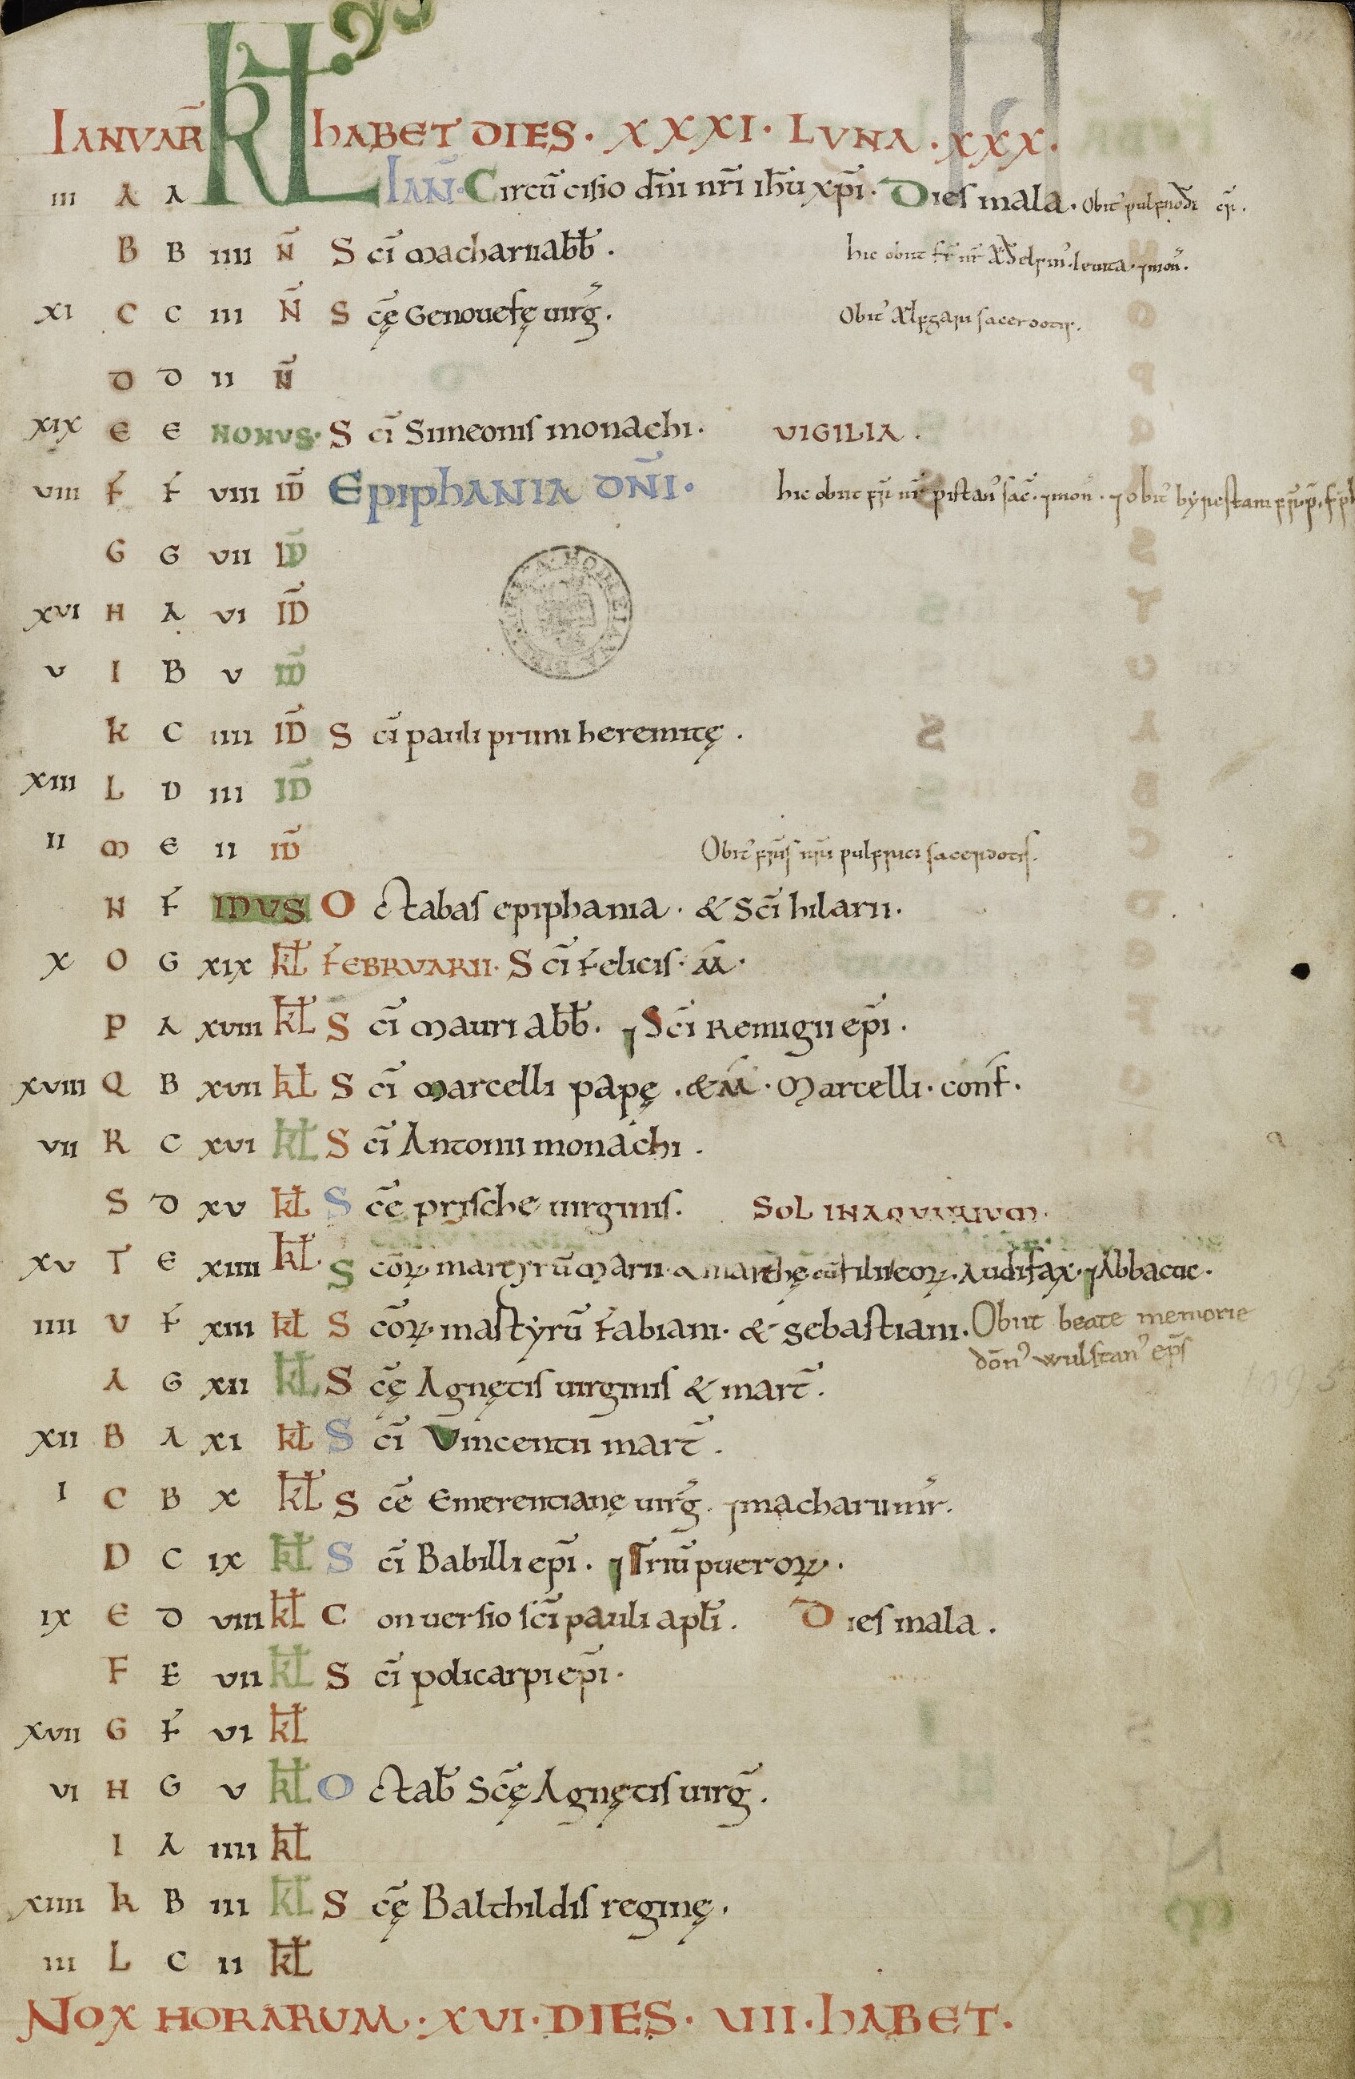 IANUAR̄ KL HABET DIES · XXXI · LUNA · XXX ·
III A A IAN̄ · Circū cisio dn̄i nr̄i ihū xp̄i · Dies mala · Obit'
B B IIII N̄ S cī macharii abb̄ · hic obiit
XI C C III N̄ S cę̄ Genouefę uirḡ · Obit' Ælfgari sacerdotis ·
D D II N̄
XIX E E NONUS · S cī Simeonis monachi · VIGILIA ·
VIII F F VIII ID̄ EPIPHANIA DN̄I · hic obiit
G G VII ID̄
XVI H A VI ID̄
V I B V ID̄
K C IIII ID̄ S cī pauli primi heremitę ·
XIII L D III ID̄
II M E II ID̄ Obit' pulfrici sacerdotis ·
N F IDUS O ctabas epiphania · & Scī hilarii ·
X O G XIX KL FEBRUARII · S cī Felicis · M̄ ·
P A XVIII KL S cī Mauri abb̄ · ⁊ Scī Remigii ep̄i ·
XVIII Q B XVII KL S cī Marcelli papę · & M̄ · Marcelli · conf̄ ·
VII R C XVI KL S cī Antonii monachi ·
S D XV KL S cē prische uirginis · SOL IN AQUARIUM ·
XV T E XIIII KL · S cōꝝ martyrū Marii · & marthę cū filiis eoꝝ · Audifax · ⁊ Abbacuc ·
IIII V F XIII KL S cōꝝ · mastyrū Fabiani · & Sebastiani · Obiit beate memorie
dōn' wulstan' ep̄s
A G XII KL S cę̄ Agnętis uirginis & mart̄ ·
XII B A XI KL S cī Vincentii mart̄ ·
I C B X KL S cē Emerentianę uirḡ · ⁊ macharii mr̄ ·
D C IX KL S cī Babilli ep̄i · ⁊ Triū pueroꝝ ·
IX E D VIII KL C onuersio scī pauli apl̄i · Dies mala ·
F E VII KL S cī policarpi ep̄i ·
XVII G F VI KL
VI H G V KL O ctab̄ Scę̄ Agnętis uirḡ ·
I A IIII KL
XIIII K B III KL S cę̄ Balthildis reginę ·
III L C II KL
NOX HORARUM · XVI · DIES · VIII · HABET ·